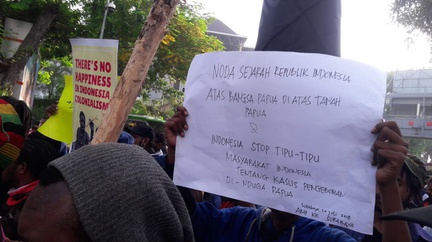 THERE'S NO
HAPPINESS
IN INDONESIA
COLONIALISM
NODA SEJARAH REPUBLIK INDONESIA
ATAS BANGSA PAPUA DI ATAS TANAH
PAPUA
INDONESIA STOP TIPU-TIPU
MASYARAKAT INDONESIA
TENTANG KASUS PENGEBOMAN
DI-NDUGA PAPUA